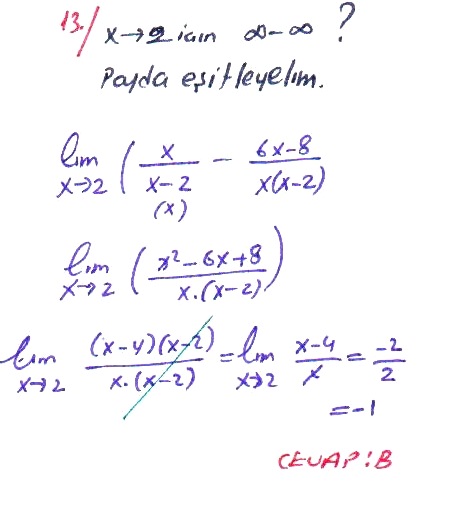 13./ x→2 için ∞-∞ ?
Payda eşitleyelim.
lim x→2 ( x/(x-2) (x) - (6x-8)/(x(x-2))
lim x→2 ( (x²-6x+8)/(x.(x-2)) )
lim x→2 (x-4)(x-2)/(x.(x-2)) = lim x→2 (x-4)/x = -2/2
=-1
CEVAP:B